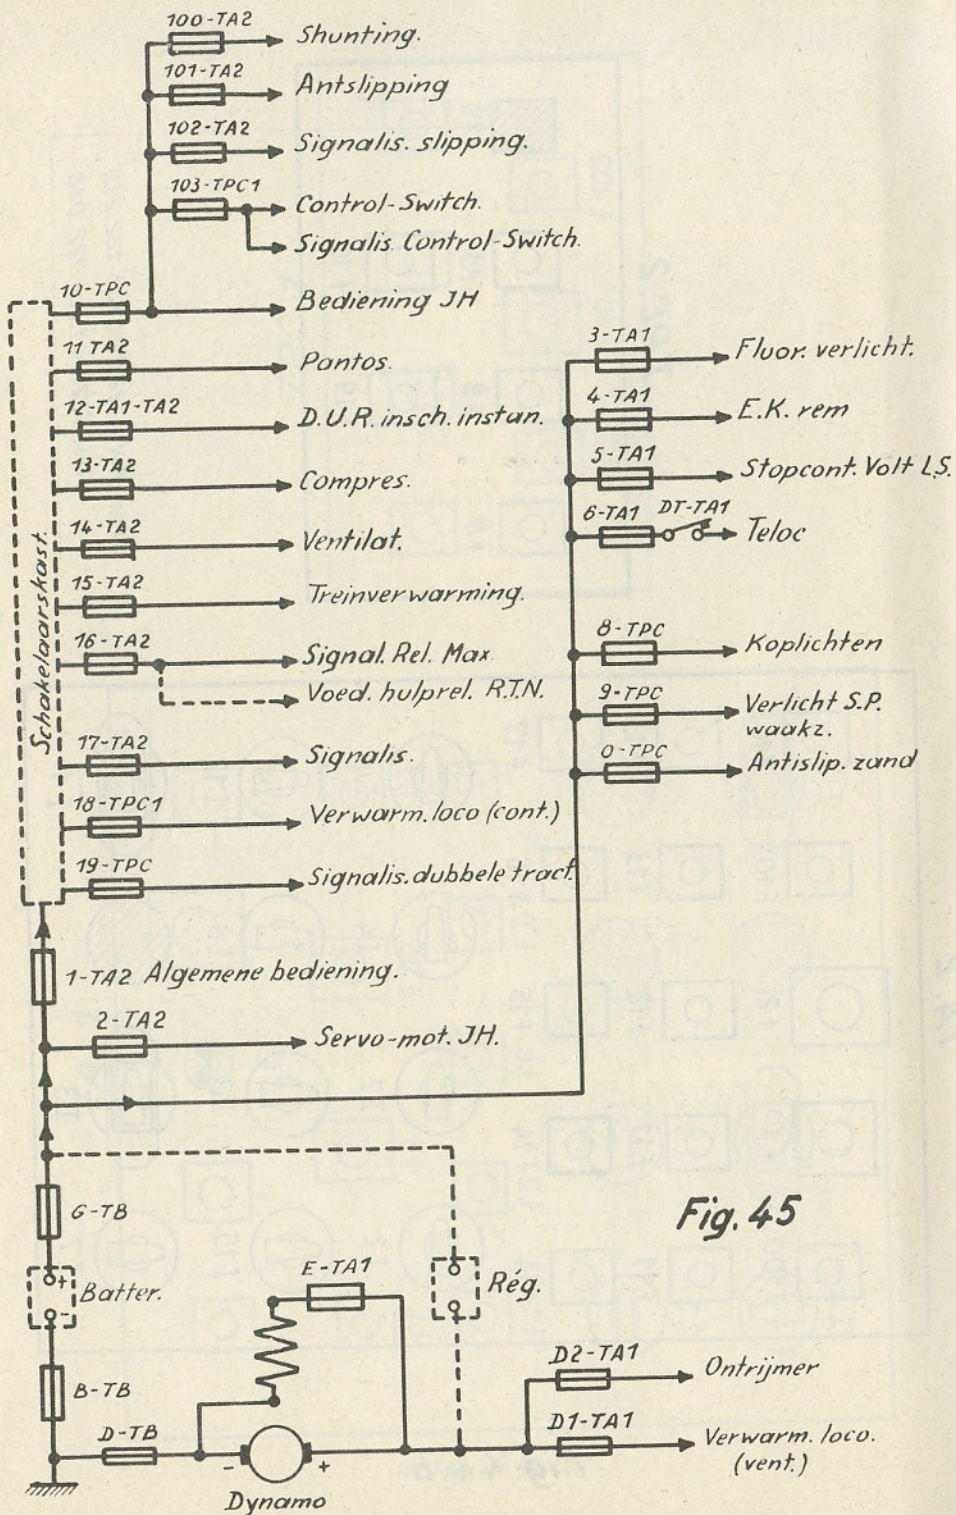 100-TA2
Shunting.
101-TA2
Antslipping
102-TA2
Signalis. slipping.
103-TPC1
Control-Switch.
Signalis. Control-Switch.
10-TPC
Bediening JH
11 TA2
Pantos.
12-TA1-TA2
D.U.R. insch. instan.
13-TA2
Compres.
14-TA2
Ventilat.
15-TA2
Treinverwarming.
16-TA2
Signal. Rel. Max.
Voed. hulprel. R.T.N.
17-TA2
Signalis.
18-TPC1
Verwarm. loco (cont.)
19-TPC
Signalis. dubbele tract.
Schakelaarskast.
1-TA2 Algemene bediening.
2-TA2
Servo-mot. JH.
3-TA1
Fluor. verlicht.
4-TA1
E.K. rem
5-TA1
Stopcont. Volt L.S.
6-TA1
DT-TA1
Teloc
8-TPC
Koplichten
9-TPC
Verlicht S.P.
waakz.
0-TPC
Antislip. zand
G-TB
Batter.
+
-
B-TB
D-TB
E-TA1
Rég.
- +
Dynamo
D2-TA1
Ontrijmer
D1-TA1
Verwarm. loco.
(vent.)
Fig. 45